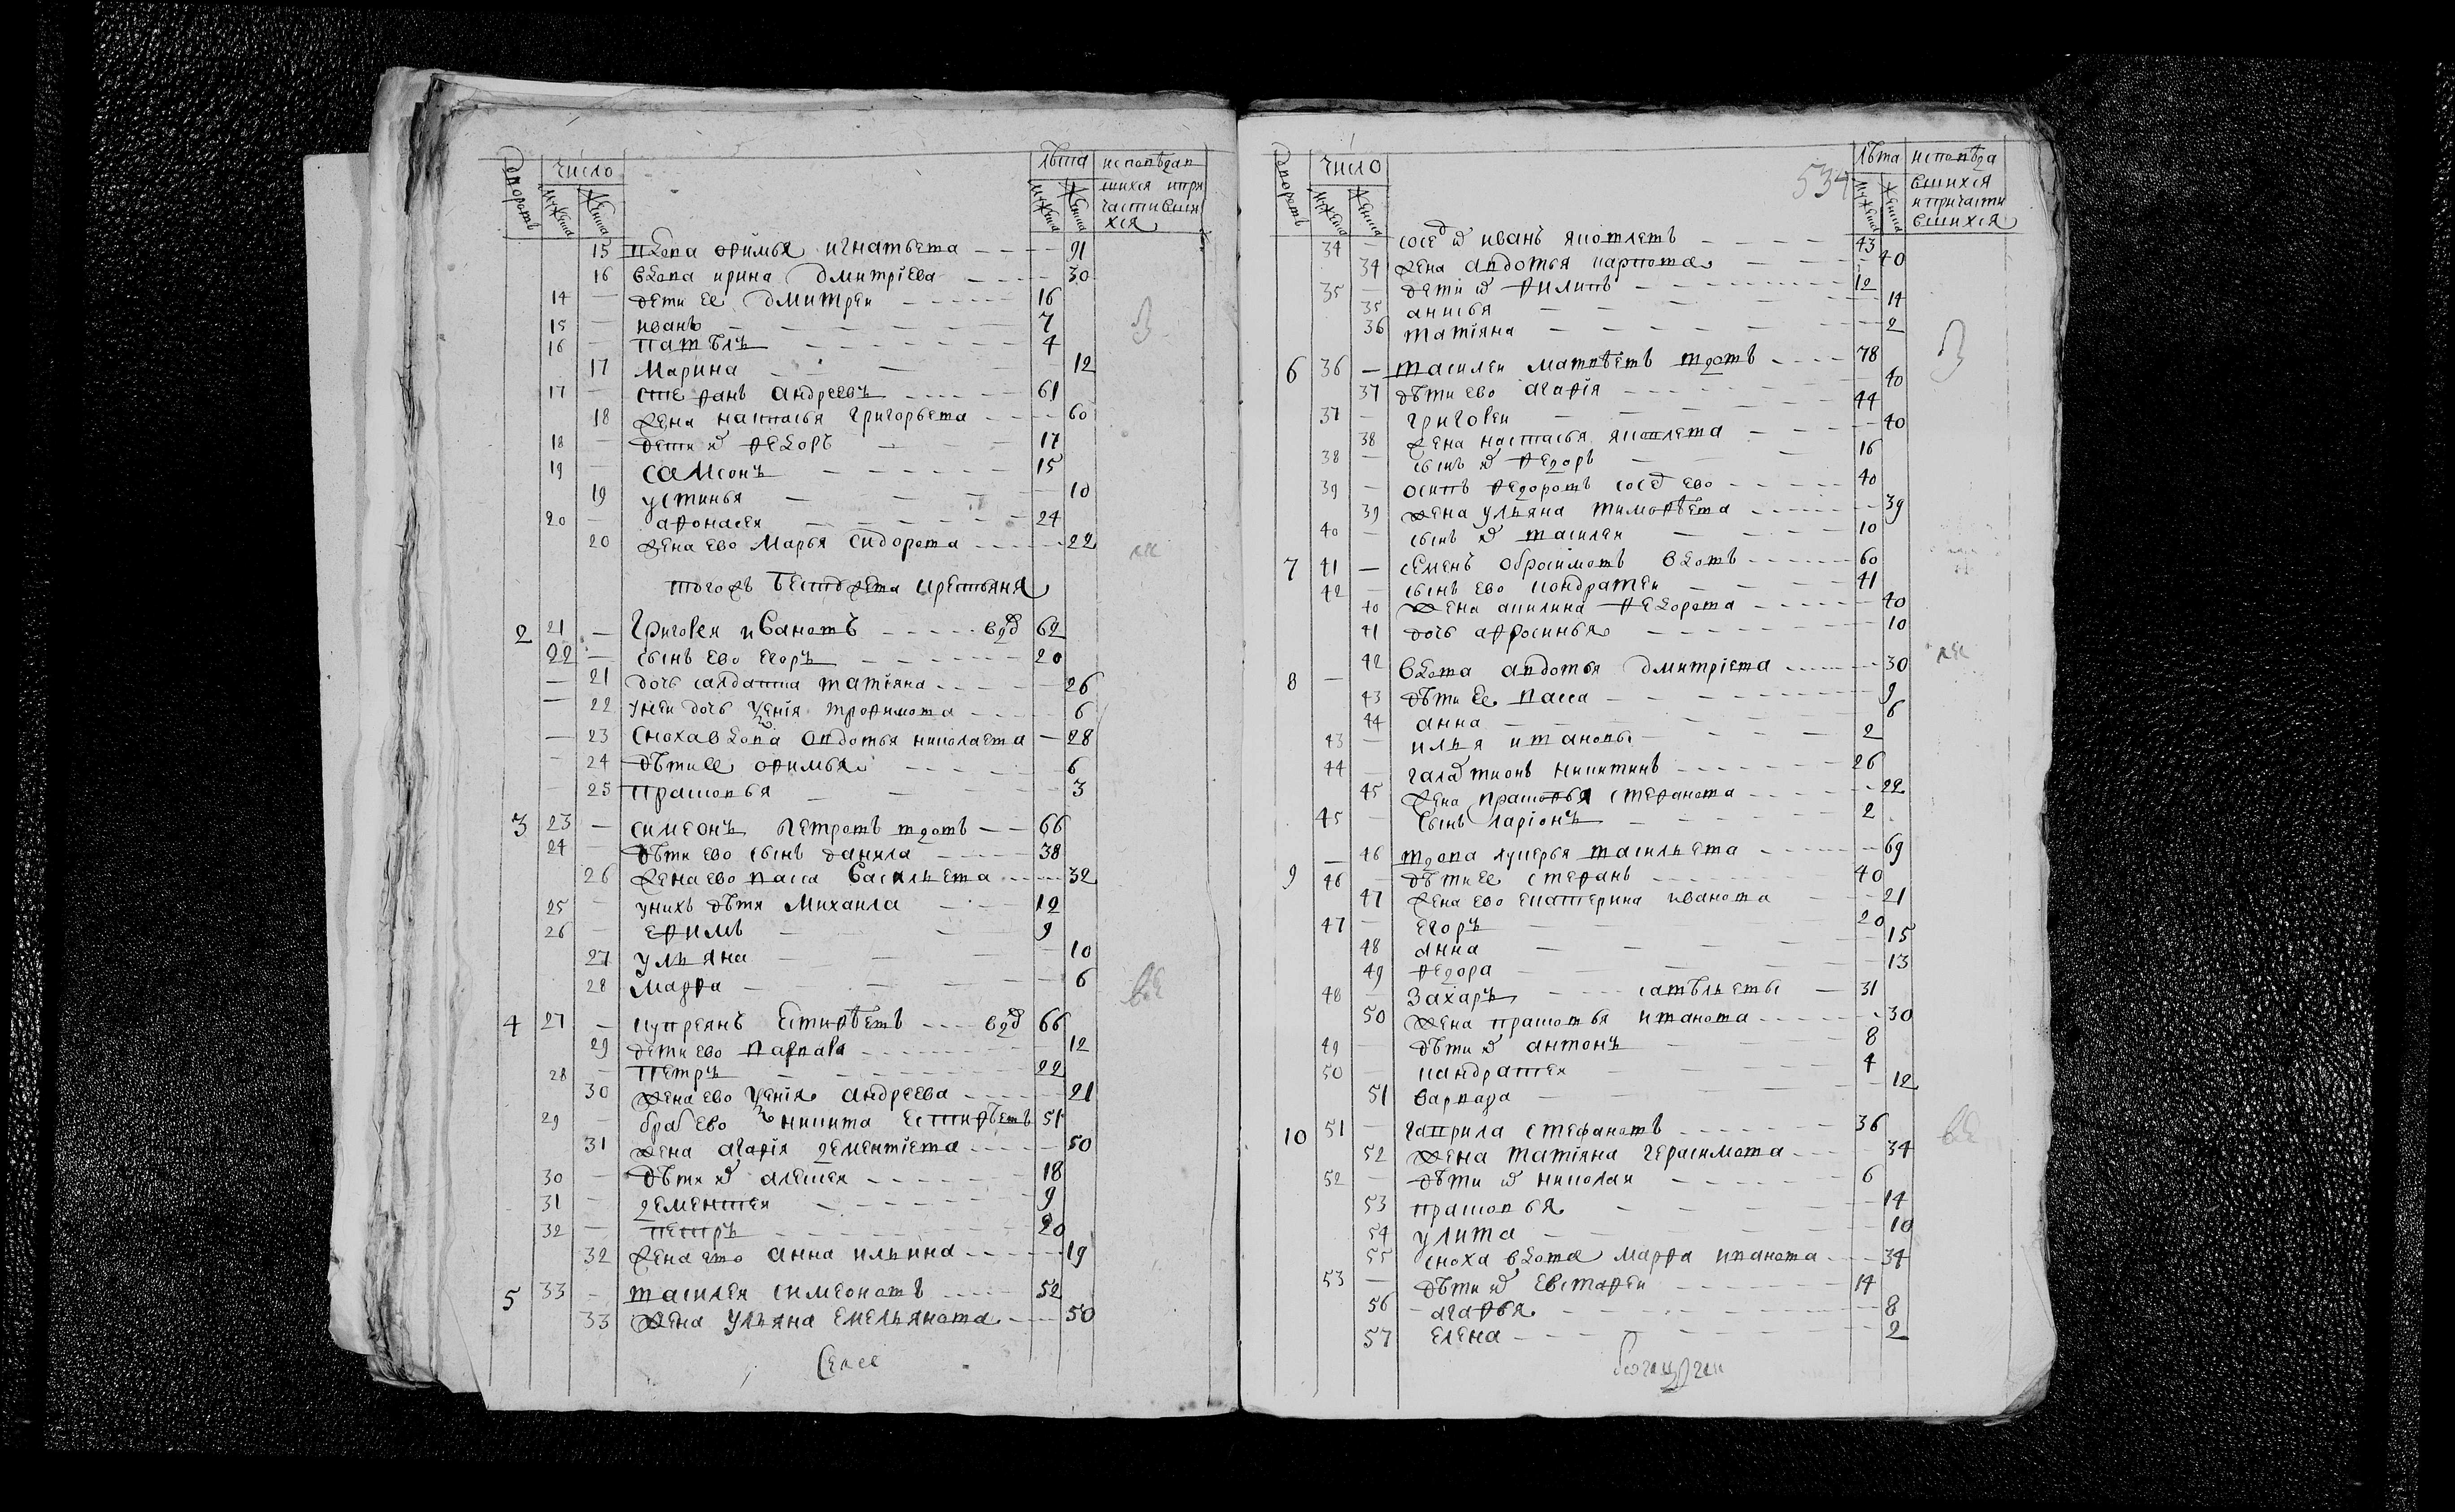 дворовъ число лѣта исповѣдав
мужеска женска мужеска женска шихся и при
частивши
хся
15 вдова офимья игнатьева 91
16 вдова ирина дмитрiева 30
14 дети ее дмитреи 16
15 иванъ 7
16 павѣлъ 4
17 Марина 12
17 стефанъ андреевъ 61
18 жена наталья григорьева 60
18 дети их федоръ 17
19 самсонъ 15
19 устинья 10
20 афонасеи 24
20 жена ево Марья сидорова 22
тогожъ кресьтяня
2 21 Григореи ивановъ вдв 62
22 сынъ ево егоръ 20
21 дочь салдатка татiяна 26
22 унеи дочь трофимова 6
23 снохавдова овдотья николаева 28
24 дѣтиее офимья 6
25 прасковья 3
3 23 симеонъ петровъ вдовъ 66
24 дѣти ево сынъ данила 38
26 женаево васса васильева 32
25 унихъ дѣти Михаила 12
26 ефимъ 9
27 ульяна 10
28 Марфа 6
4 27 купреянъ естифѣевъ вдв 66
29 дети ево варвара 12
28 петръ 22
30 жена ево андреева 21
29 братъ ево никита естифѣевъ 51
31 жена агафiя дементiева 50
30 дѣти их алексеи 18
31 дементеи 9
32 петръ 20
32 жена ево анна ильина 19
5 33 василеи симеоновъ 52
33 жена ульяна емельянова 50
дворовъ число 534 лѣта исповѣда
мужеска женска мужеска женска вшихся
и причасти
вшихся
34 сосед их иванъ яковлевъ 43
34 жена авдотья карпова 40
35 дети их филипъ 12
35 анисья 14
36 татiяна 2
6 36 василеи матвѣевъ вдовъ 78
37 дѣти ево агафiя 40
37 григореи 44
38 жена настасья яковлева 40
38 сынъ их федоръ 16
39 осипъ федоровъ сосед ево 40
39 жена ульяна тимофѣева 39
40 сынъ их василеи 10
7 41 семенъ обросимовъ вдовъ 60
42 сынъ ево кондратеи 41
40 жена акилина федорова 40
41 дочь афросинья 10
8 42 вдова авдотья дмитрiева 30
43 дѣти ее васса 9
44 анна 6
43 илья ивановы 2
44 галактионъ никитинъ 26
45 жена прасковья стефанова 22
45 сынъ ларiонъ 2
46 вдова лукерья васильева 69
9 46 дѣтиее стефанъ 40
47 жена ево екатерина иванова 21
47 егоръ 20
48 анна 15
49 федора 13
48 Захаръ савѣльевъ 31
50 жена прасковья иванова 30
49 дѣти их антонъ 8
50 кандратеи 4
51 варвара 12
10 51 гаврила стефановъ 36
52 жена татiяна герасимова 34
52 дѣти их николаи 6
53 прасковья 14
54 улита 10
55 сноха вдова марфа иванова 34
53 дѣти их евстафеи 14
56 агафья 8
57 елена 2